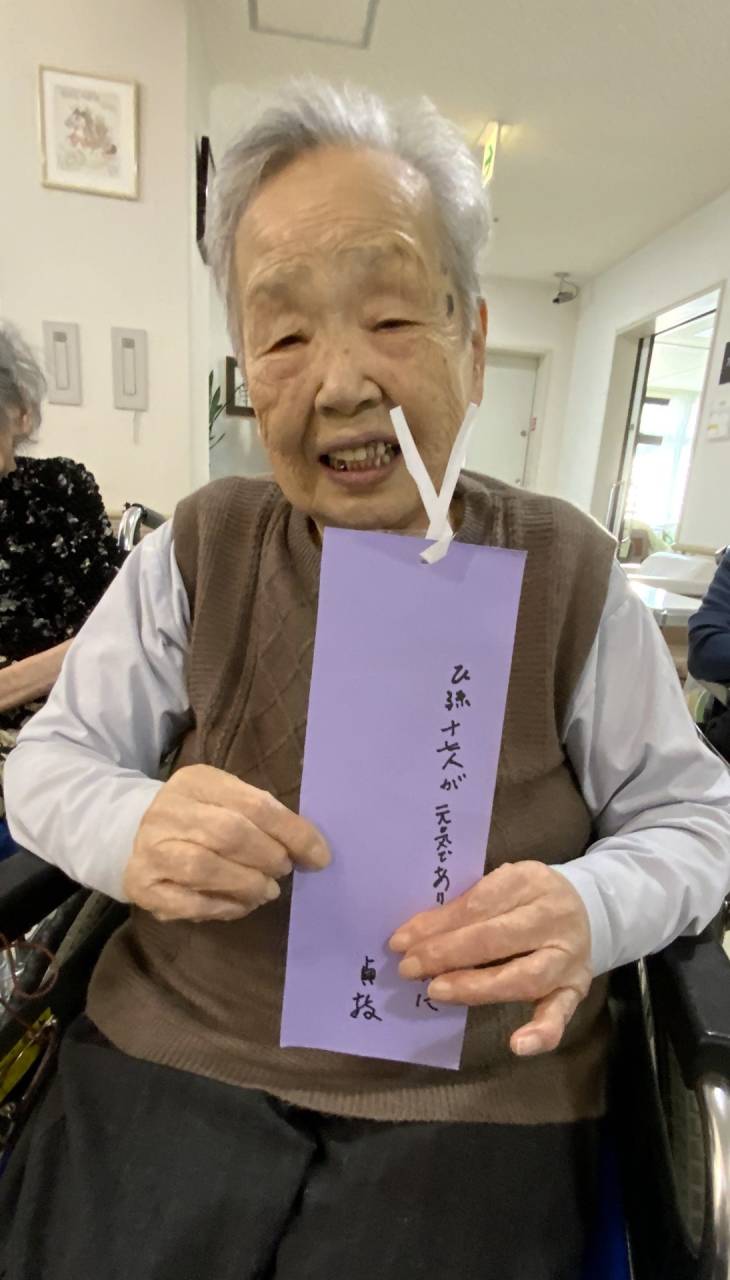 ひ孫十七人が元気であり
貞枝